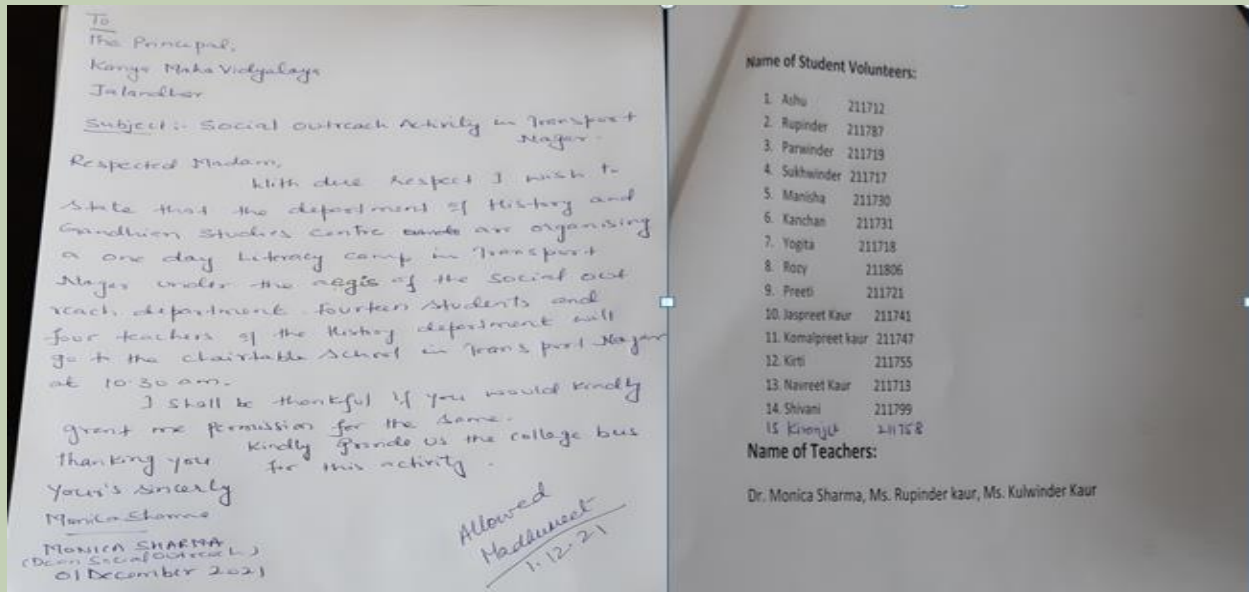 To
The Principal,
Kanya Maha Vidyalaya
Jalandhar
Subject:- Social outreach Activity in Transport
Nagar.
Respected Madam,
With due respect I wish to
state that the department of History and
Gandhian Studies centre are organising
a one day Literacy camp in Transport
Nagar under the aegis of the social out
reach department. fourteen students and
four teachers of the History department will
go to the chairtable school in Transport Nagar
at 10.30 am.
I shall be thankful if you would kindly
grant me permission for the same.
Kindly provide us the college bus
for this activity.
Thanking you
Your's sincerly
Monica Sharma
MONICA SHARMA
(Dean Social Outreach)
01 December 2021
Allowed
Madhumeet
1.12.21
Name of Student Volunteers:
1. Ashu 211712
2. Rupinder 211787
3. Parwinder 211719
4. Sukhwinder 211717
5. Manisha 211730
6. Kanchan 211731
7. Yogita 211718
8. Rozy 211806
9. Preeti 211721
10. Jaspreet Kaur 211741
11. Komalpreet kaur 211747
12. Kirti 211755
13. Navreet Kaur 211713
14. Shivani 211799
15 211758
Name of Teachers:
Dr. Monica Sharma, Ms. Rupinder kaur, Ms. Kulwinder Kaur